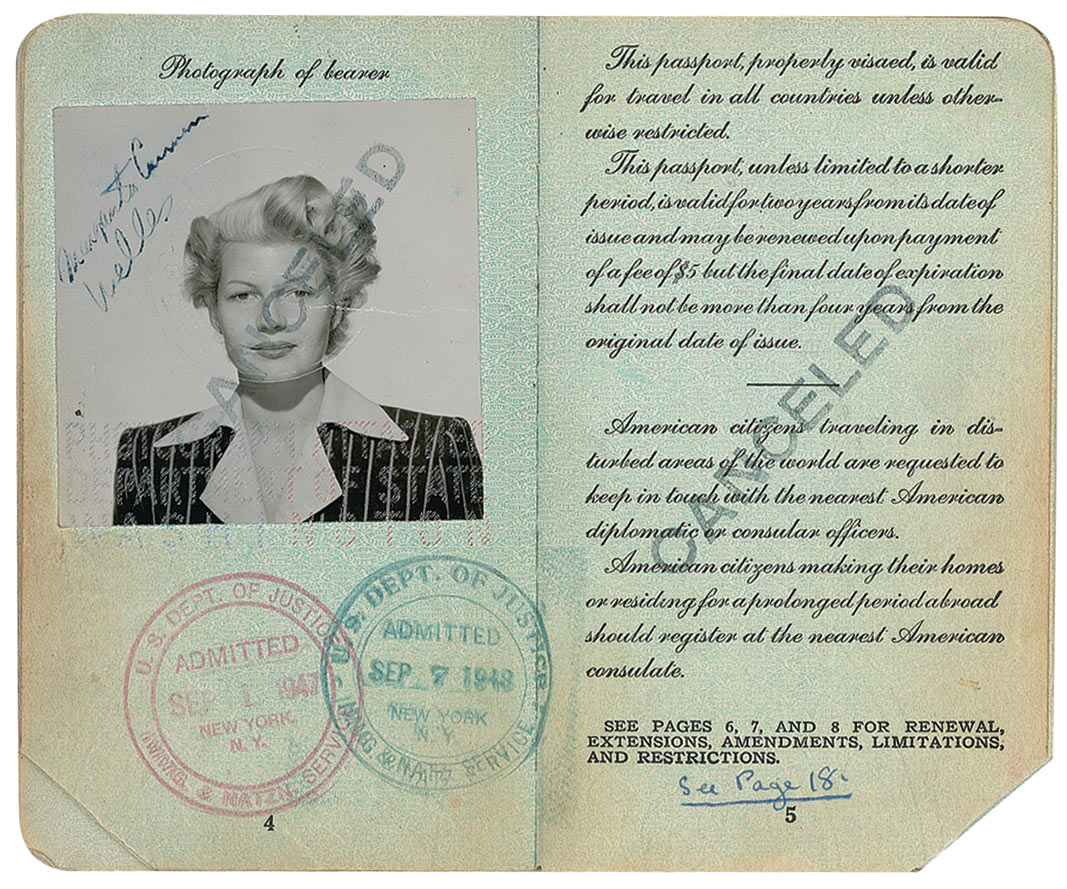 Photograph of bearer
Welles
CANCELED
PHOTOGRAPH ATTACHED
DEPARTMENT OF STATE
WASHINGTON
U.S. DEPT. OF JUSTICE
ADMITTED
SEP 1 1947
NEW YORK,
N.Y.
& NATZN. SERVICE
U.S. DEPT. OF JUSTICE
ADMITTED
SEP 7 1948
NEW YORK
N.Y.
SERVICE
4
This passport, properly visaed, is valid
for travel in all countries unless other-
wise restricted.
This passport, unless limited to a shorter
period, is valid for two years from its date of
issue and may be renewed upon payment
of a fee of $5 but the final date of expiration
shall not be more than four years from the
original date of issue.
American citizens traveling in dis-
turbed areas of the world are requested to
keep in touch with the nearest American
diplomatic or consular officers.
American citizens making their homes
or residing for a prolonged period abroad
should register at the nearest American
consulate.
CANCELED
SEE PAGES 6, 7, AND 8 FOR RENEWAL,
EXTENSIONS, AMENDMENTS, LIMITATIONS,
AND RESTRICTIONS.
See Page 18.
5